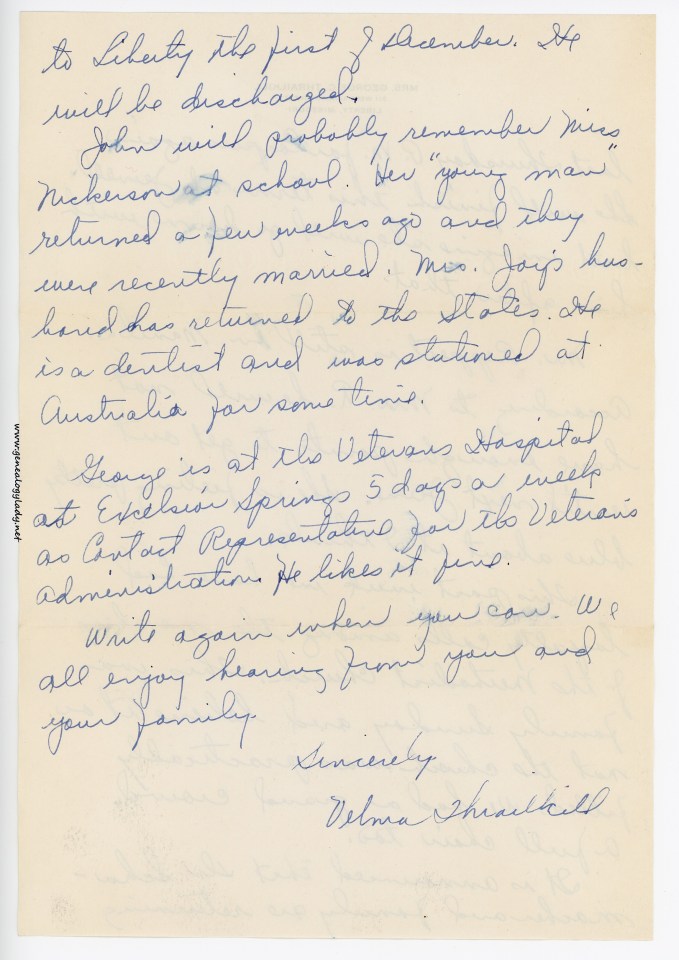 to Liberty the first of December. He
will be discharged.
John will probably remember Miss
Nickerson at school. Her "young man"
returned a few weeks ago and they
were recently married. Mrs. Joy's hus-
band has returned to the States. He
is a dentist and was stationed at
Australia for some time.
George is at the Veterans Hospital
at Excelsior Springs 5 days a week
as Contact Representative for the Veteran's
Administration. He likes it fine.
Write again when you can. We
all enjoy hearing from you and
your family.
Sincerely
Velma Thrailkill
www.genealogylady.net